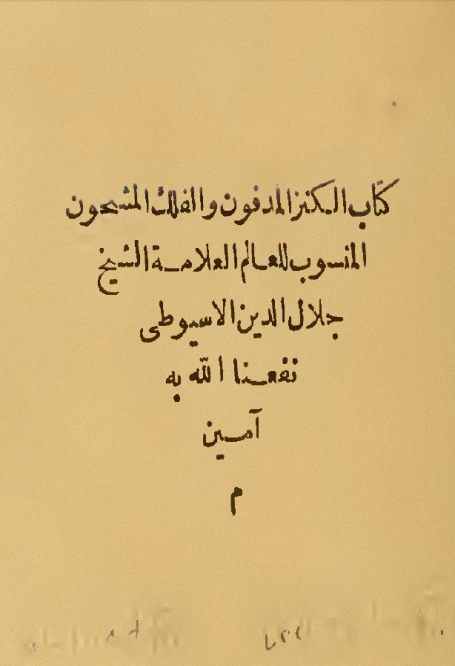 كتاب الكنز المدفون والفلك المشحون
المنسوب للعالم العلامة الشيخ
جلال الدين الاسيوطى
نفعنا الله به
آمين
م